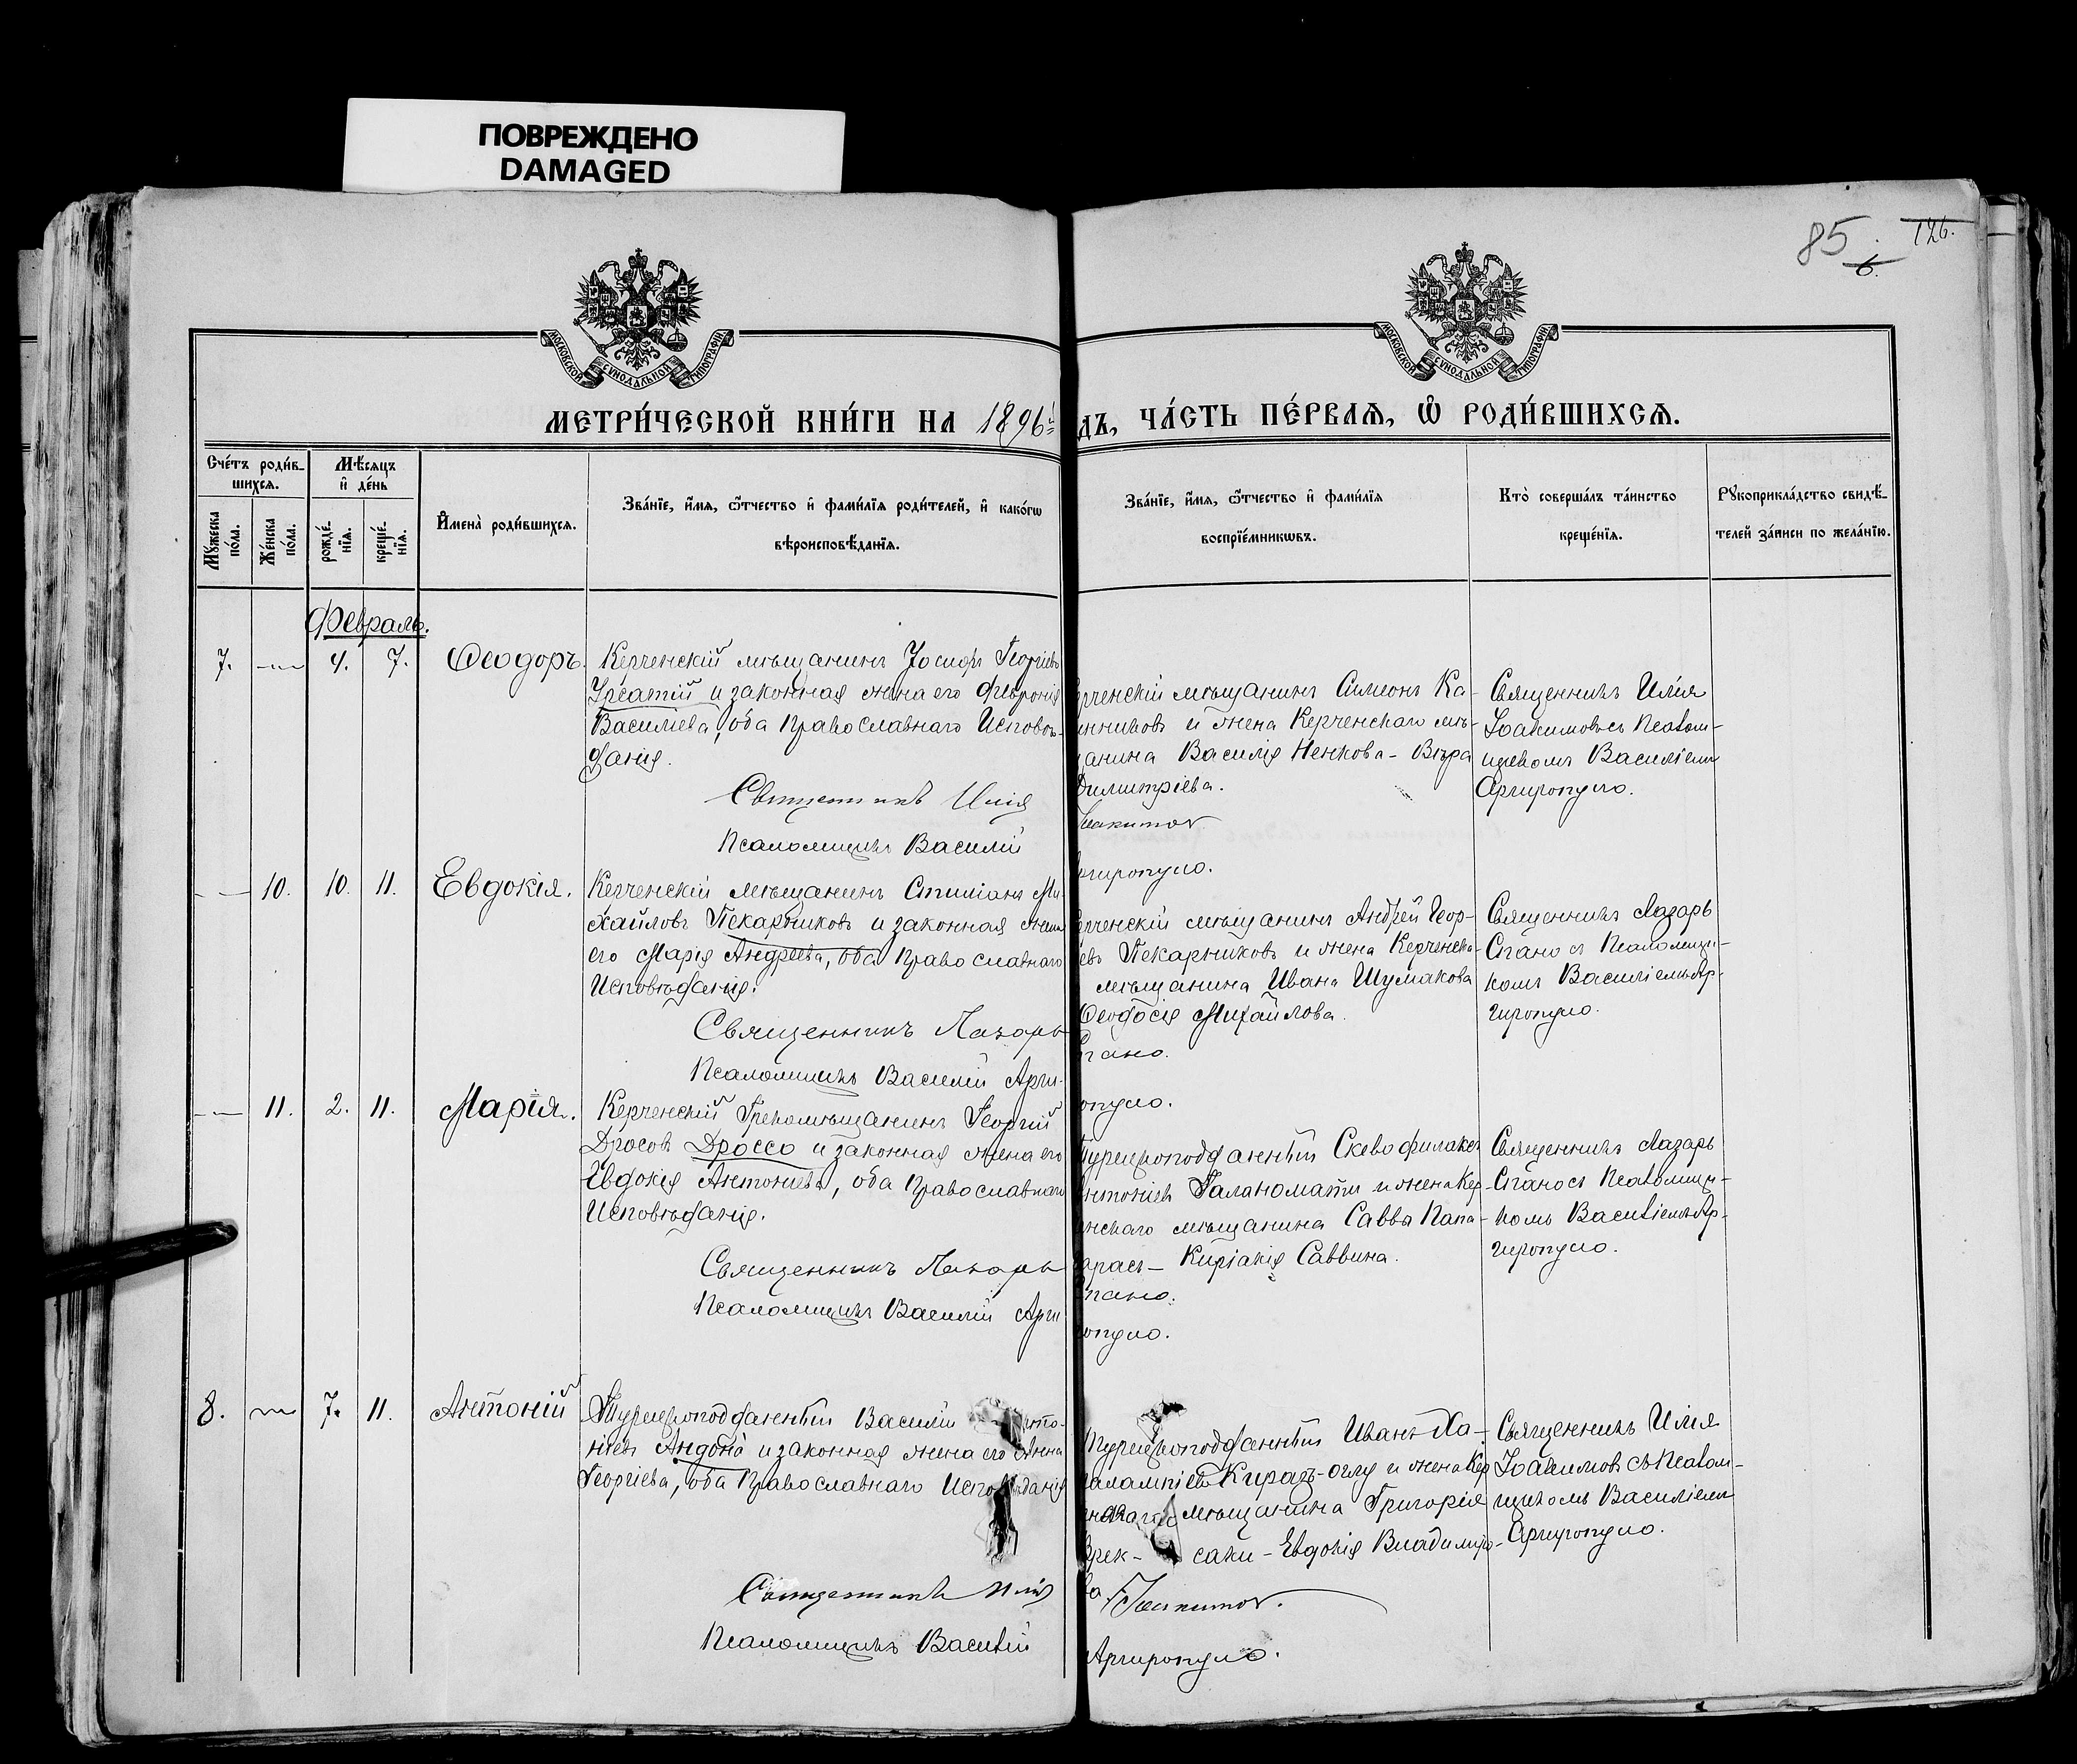 ПОВРЕЖДЕНО
DAMAGED
85. 126.
6.
МОСКОВСКОЙ СѴНОДАЛЬНОЙ ТИПОГРАФІИ
МОСКОВСКОЙ СѴНОДАЛЬНОЙ ТИПОГРАФІИ
МЕТРИ́ЧЕСКОЙ КНИ́ГИ НА 1896й
дъ, ЧА́СТЬ ПЕ́РВАѦ, Ѽ РОДИ́ВШИХСѦ.
Сче́тъ роди́в-
шихсѧ.
Мꙋ́жеска по́ла.
Же́нска по́ла.
Мѣ́сѧцъ
и҆ де́нь
рожде́-
нїѧ.
креще́-
нїѧ.
И҆мена̀ роди́вшихсѧ.
Зва́нїе, и҆́мѧ, ѻ҆́тчество и҆ фами́лїѧ роди́телей, и҆ како́гѡ
вѣроисповѣ́данїѧ.
Зва́нїе, и҆́мѧ, ѻ҆́тчество и҆ фами́лїѧ
воспрїе́мникѡвъ.
Кто̀ соверша́лъ та́инство
креще́нїѧ.
Рꙋкоприкла́дство свидѣ́-
телей за́писи по жела́нїю.
Февраль.
7. — 4. 7. Ѳеодоръ.
Керченскій мѣщанинъ Іосифъ Георгіевъ
и законная жена его Февронія
Васильева, оба Православнаго Исповѣ-
данія.
Священникъ Илія
Псаломщикъ Василій
рченскій мѣщанинъ Симеонъ Ка-
нниковъ и жена Керченскаго мѣ-
анина Василія Ненкова - Вѣра
Димитріева.
Іоакимов
ргиропуло.
Священникъ Илія
Іоакимовъ съ Псалом-
щикомъ Василіемъ
Аргиропуло.
— 10. 10. 11. Евдокія.
Керченскій мѣщанинъ Стиліанъ Ми-
хайловъ Пекарниковъ и законная жена
его Марія Андреева, оба Православнаго
Исповѣданія.
Священникъ Лазарь
Псаломщикъ Василій Арги-
рченскій мѣщанинъ Андрей Геор-
евъ Пекарниковъ и жена Керченска-
мѣщанина Ивана Шумакова
Ѳеодосія Михайлова.
пано.
опуло.
Священникъ Лазарь
Спано съ Псаломщи-
комъ Василіемъ Ар-
гиропуло.
— 11. 2. 11. Марія.
Керченскій Грекомѣщанинъ Георгій
Дросовъ Дроссо и законная жена его
Евдокія Антоніева, оба Православнаго
Исповѣданія.
Священникъ Лазарь
Псаломщикъ Василій Арги-
Турецкоподданный Скевофилаксъ
нтоніевъ Галаномати и жена Кер-
нскаго мѣщанина Савва Папа-
арасъ - Киріакія Саввина.
пано.
опуло.
Священникъ Лазарь
Спано съ Псаломщи-
комъ Василіемъ Ар-
гиропуло.
8. — 7. 11. Антоній
Турецкоподданный Василій нто-
ніевъ Андона и законная жена его Анна
Георгіева, оба Православнаго Исповѣданія
Священникъ Илія
Псаломщикъ Василій
Турецкоподданный Иванъ Ха-
ралампіевъ Киразъ-оглу и жена Кер
мѣщанина Григорія
саки - Евдокія Владимiро-
ва. Іоакимов.
Аргиропуло.
Священникъ Илія
Іоакимовъ съ Псалом-
щикомъ Василіемъ
Аргиропуло.